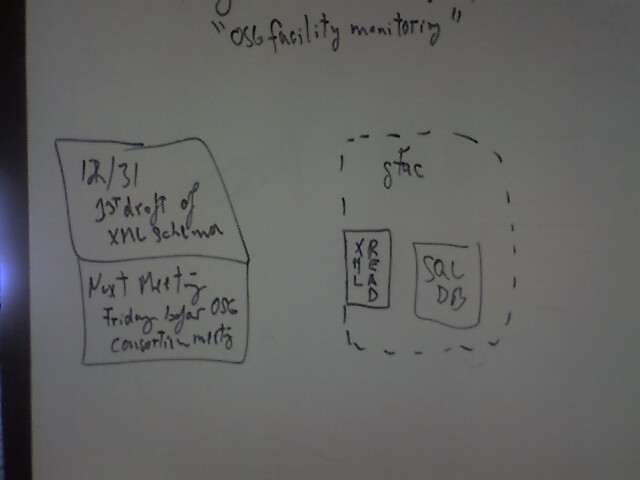 "OSG facility monitoring"
12/31
1st draft of
XML schema
Next Meeting
Friday befor OSG
consortium meeting
gfac
XML READ
SQL
DB